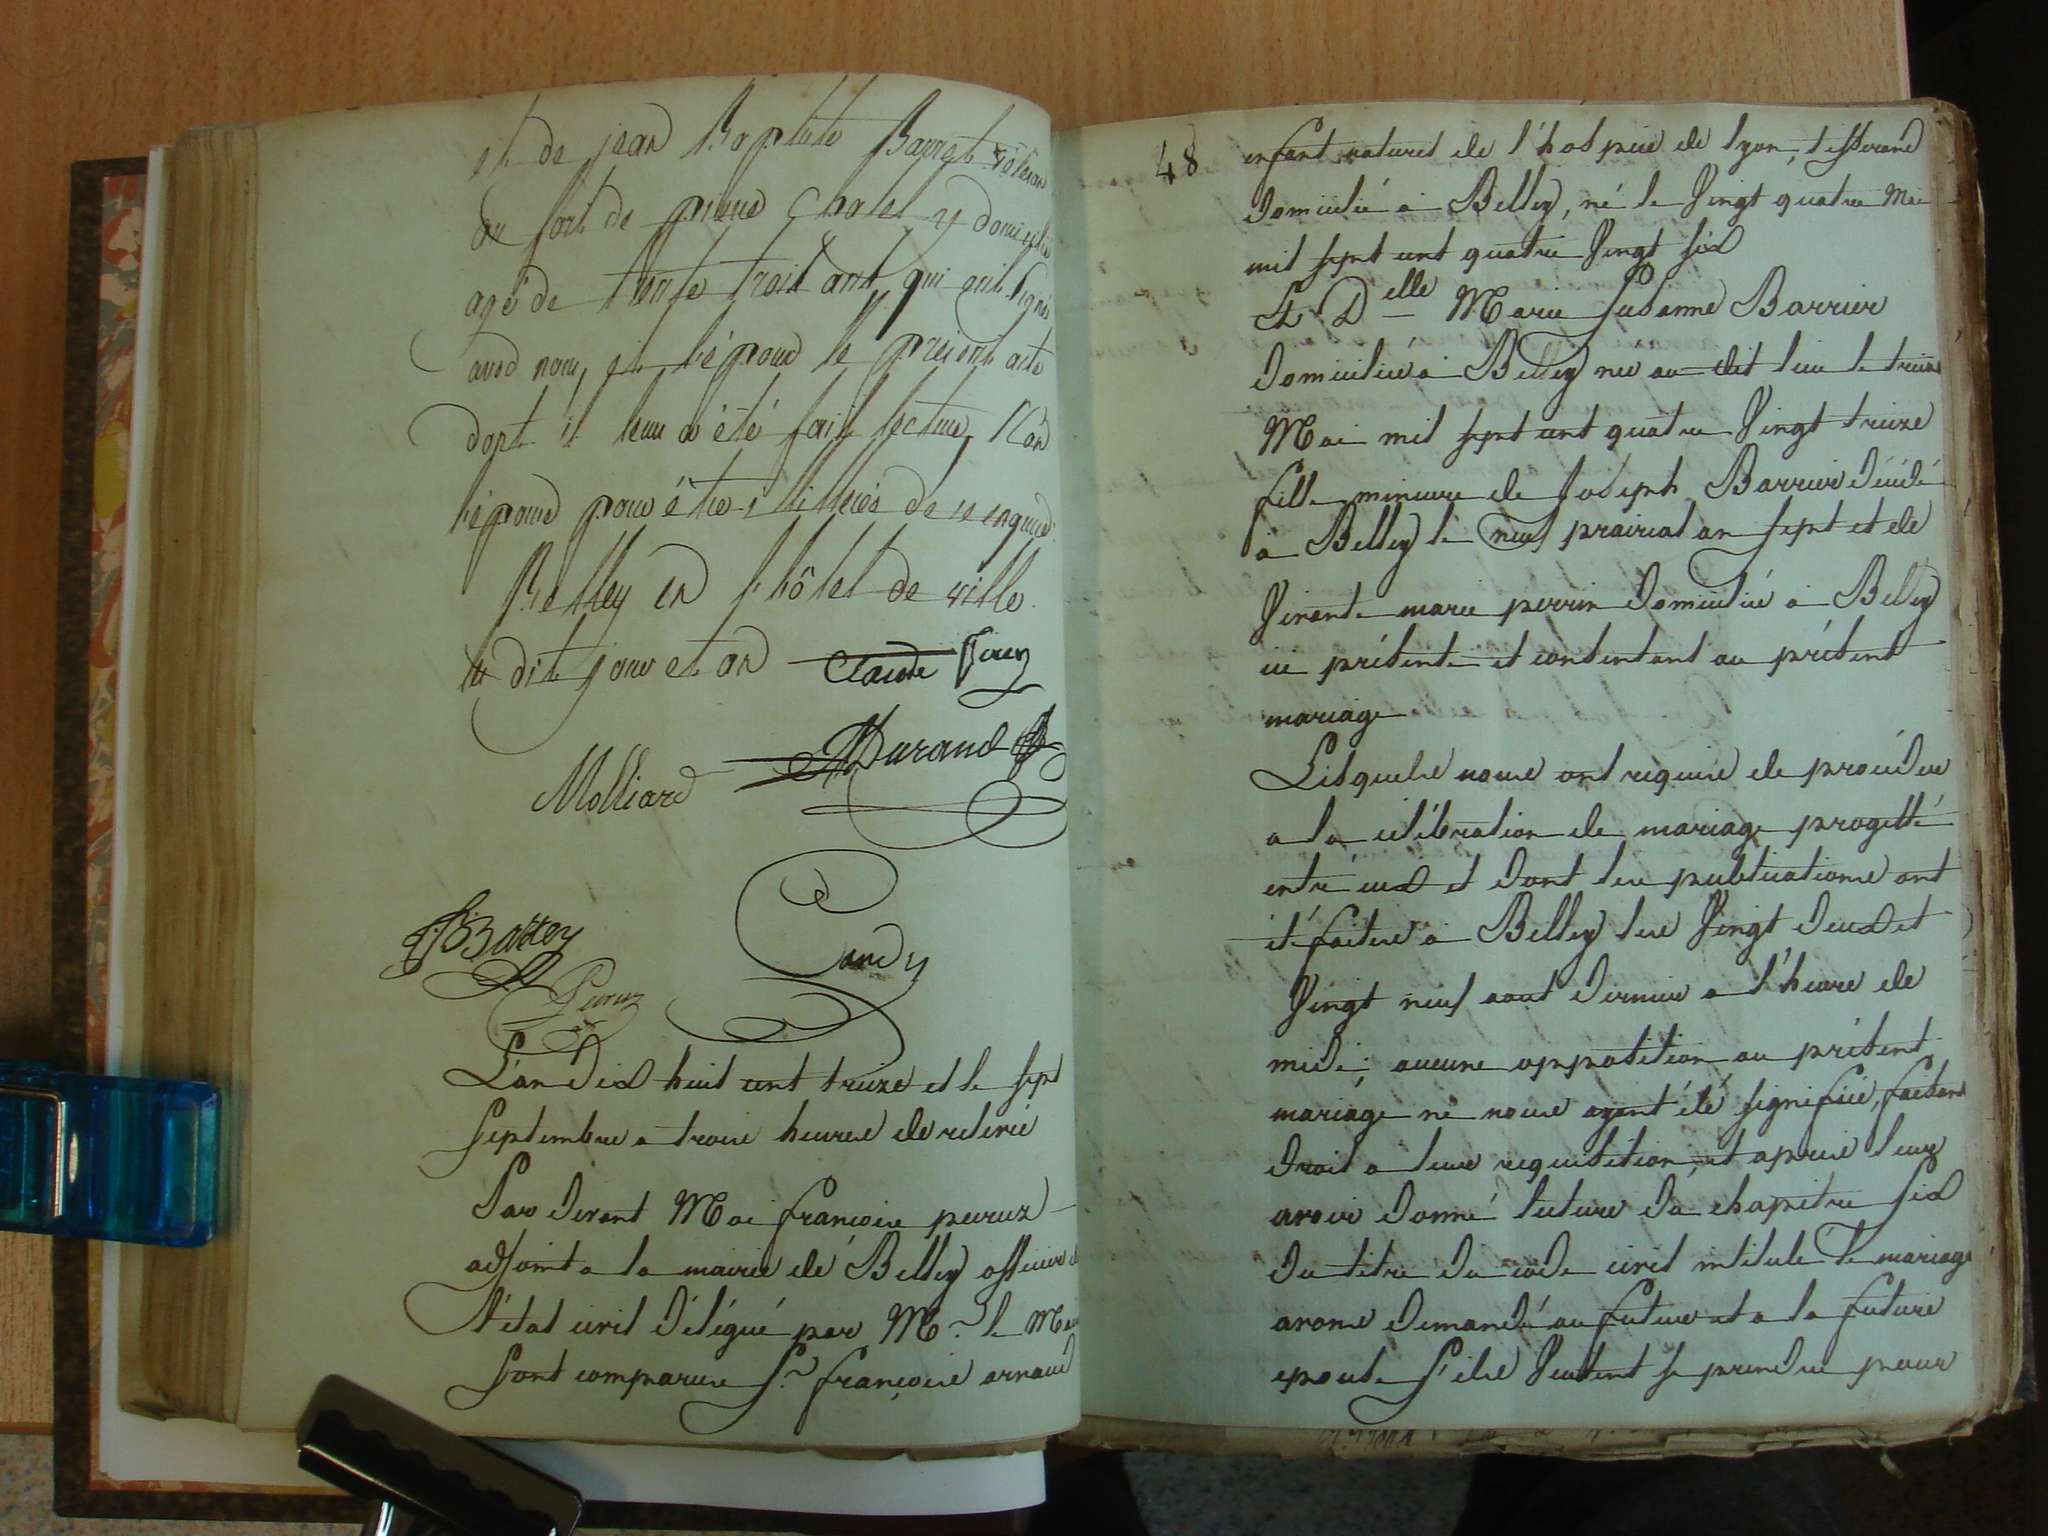 et de jean Baptiste Barret vétéran
au fort de pierre Chatel y domicilié
agé de trente trois ans, qui ont signé
avec nous, et l'époux le présent acte
dont il leur a été fait lecture, Non
l'épouse pour être illitérée de ce enquise
Belley en l'hôtel de ville
le dit jour et an Claude
Molliard Durand
Battey
Candy
Peruz
L'an dix huit cent treize et le sept
Septembre a trois heures de relevée
Par devant Moi françois peruz
adjoint a la mairie de Belley officier de
l'état civil délégué par Mr. le Maire
sont comparus Sr. françois arnaud
48
enfant naturel de l'hospice de lyon, tisserand
Domicilié a Belley, né le Vingt quatre Mai
mil sept cent quatre Vingt six
Et Delle Marie Susanne Barrier
Domiciliée a Belley née au dit lieu le treize
Mai mil sept cent quatre Vingt treize
fille mineure de Joseph Barrier décédé
a Belley le neuf prairial an sept et de
Vivante marie perrin Domiciliée a Belley
ici présente et consentant au présent
mariage
Lesquels nous ont requis de procéder
a la célébration de mariage progetté
entré eux et dont les publications ont
été faites a Belley les Vingt deux et
Vingt neuf aout dernier a l'heure de
midi; aucune opposition au présent
mariage ne nous ayant été signifiée, faisant
droit a leur requisition, et apres leur
avoir donné lecture du chapitre six
du titre du code civil intitulé le mariage
avons demandé au futur et a la future
epouse s'ils Veulent se prendre pour